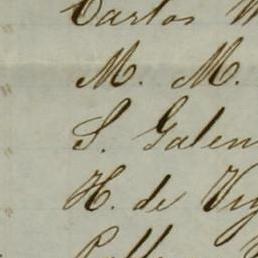 Carlos
M. M.
S. Galen
H. de Vig